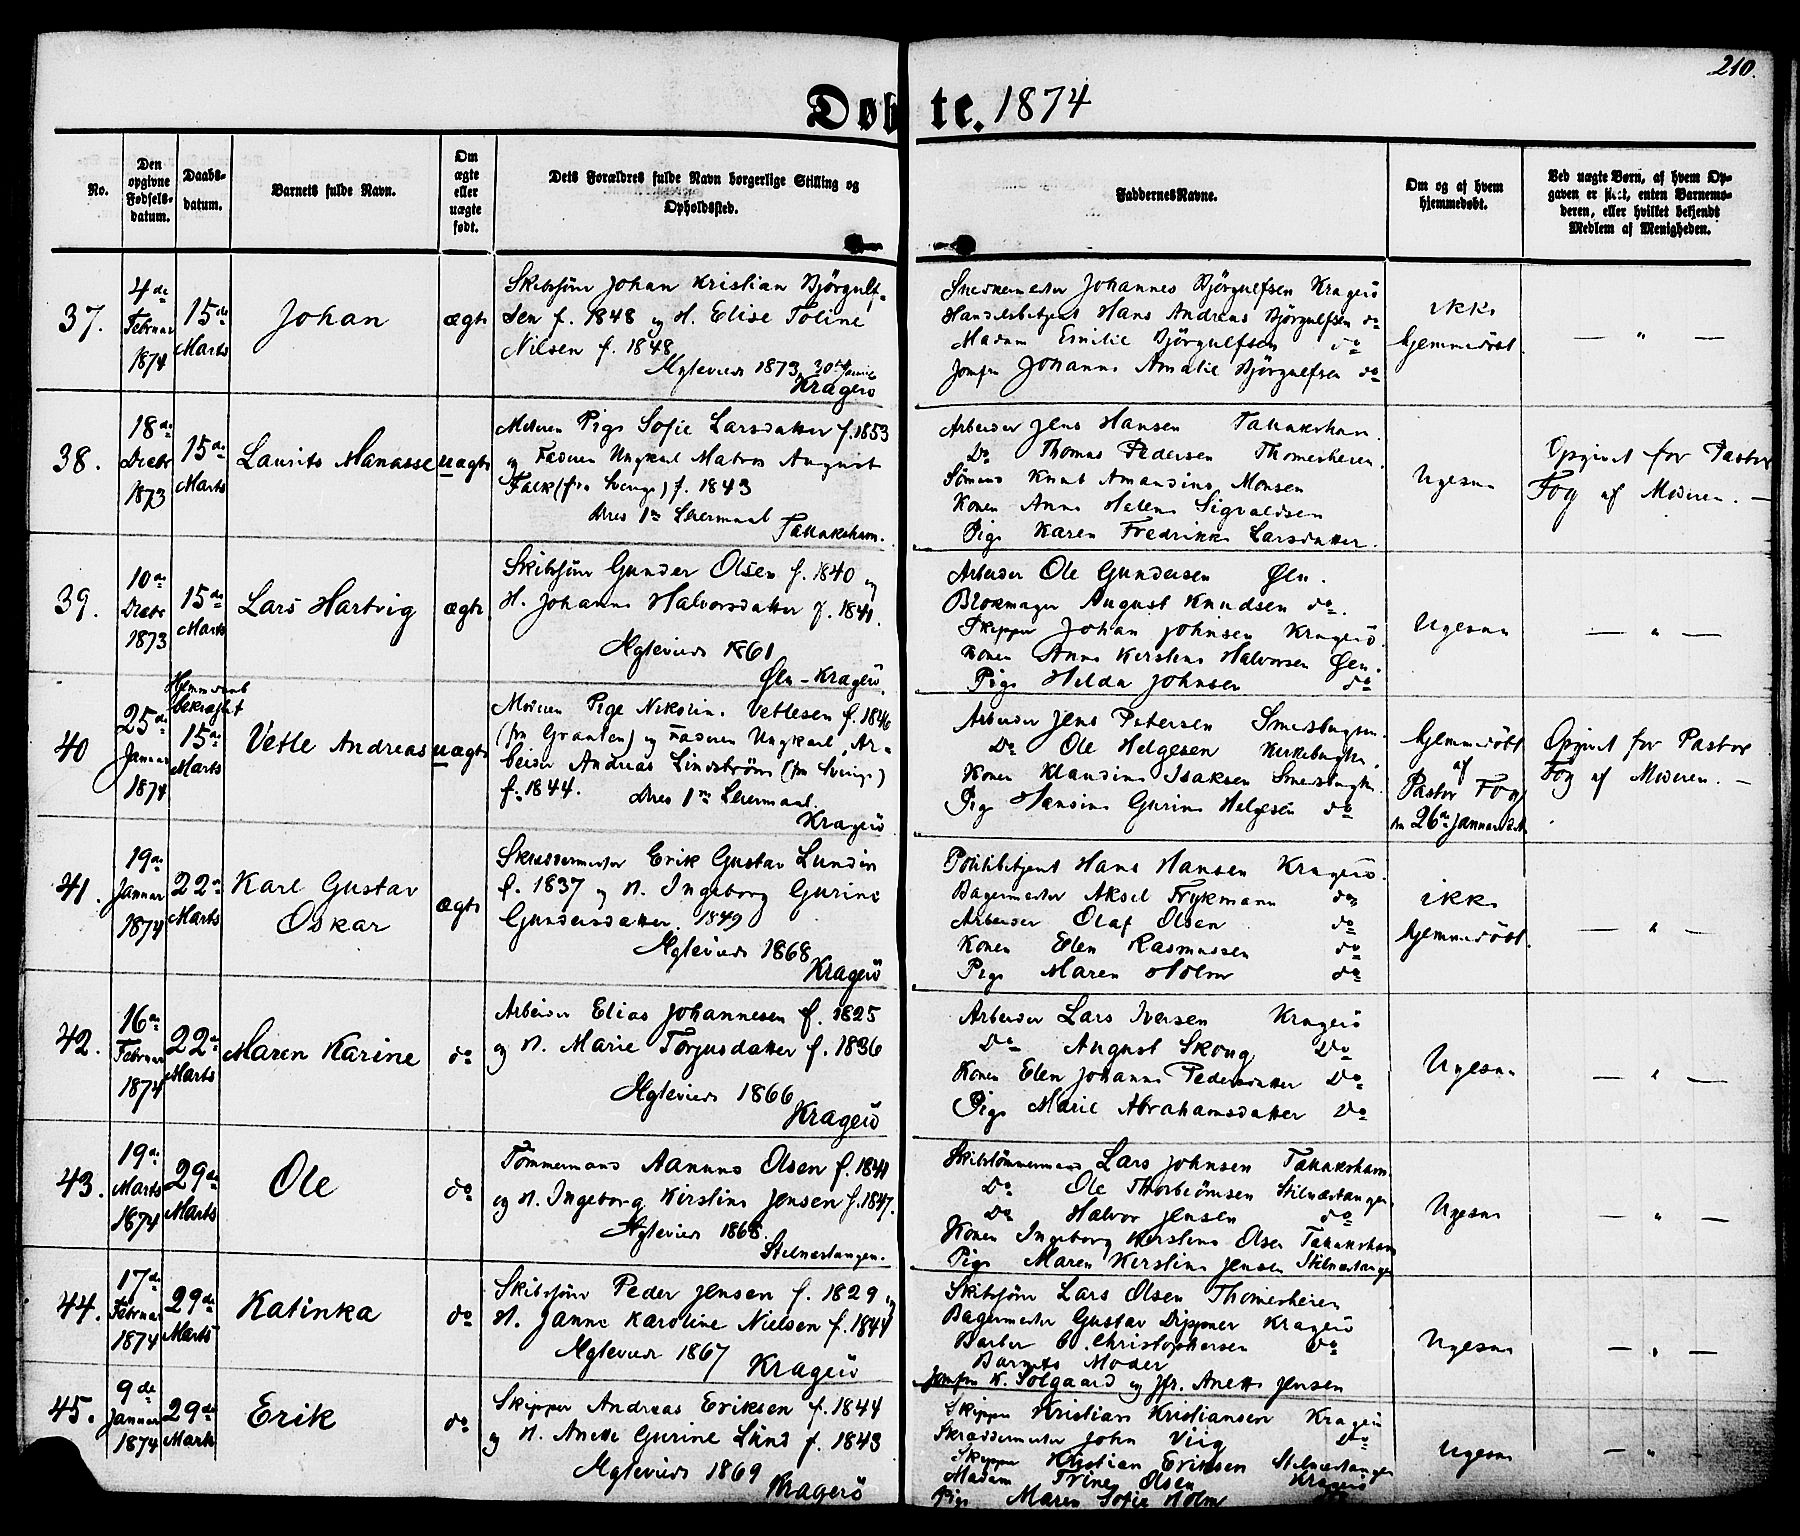 210.
Døbte. 1874
No.
Den opgivne Fødsels-datum.
Daabs-datum.
Barnets fulde Navn.
Om ægte eller uægte født.
Dets Forældres fulde Navn borgerlige Stilling og Opholdssted.
Faddernes Navne.
Om og af hvem hjemmedøbt.
Ved uægte Børn, af hvem Opgaven er skeet, enten Barnemoderen, eller hvilket bekjendt Medlem af Menigheden.
37.
4de Februar 1874
15de Marts
Johan
ægte
Skibsfører Johan Kristian Bjørgulf-
sen f. 1848 og H. Elise Toline
Nielsen f. 1848
Ægteviede 1873
Kragerø
Snedkermester Johannes Bjørgulfsen Kragerø
Handelsbetjent Hans Andreas Bjørgulfsen do
Madam Emilie Bjørgulfsen do
Jomfru Johanne Amalie Bjørgulfsen do
ikke
hjemmedøbt.
— " —
38.
18de Decbr 1873
15de Marts
Laurits Manasse
uægte
Moderen Pige Sofie Larsdatter f. 1853
og Faderen Ungkarl Matros August
Falk (fra Sverige) f. 1843
Deres 1ste Leiermaal
Taatøkshavn.
Arbeider Jens Hansen
Do Thomas Pedersen Thomesheien.
Sømand Knut Amandius Monsen
Konen Anne Helene Sigvaldsen
Pige Karen Fredrikke Larsdatter.
Ugesme
Opgivet for Pastor
Fog af Moderen. —
39.
10de Decbr 1873
15de Marts
Lars Hartvig
ægte
Skibsfører Gunder Olsen f. 1840 og
H. Johanne Halvorsdatter f. 1841.
Ægteviede 1861
Øen - Kragerø.
Arbeider Ole Gundersen Øen.
Blokmager August Knudsen do.
Skipper Johan Johnsen Kragerø
Konen Anne Kirstine Halvorsen Øen.
Pige Helda Johnsen do
— " —
40
25de Januar 1874
Hjemmedaab bekræftet
15de Marts
Vetle Andreas
uægte
Moderen Pige Nikoline Vetlesen f. 1846
(fra Granten) og Faderen Ungkarl, Ar-
beider Andreas Lindstrøm (fra Sverige)
f. 1844. Deres 1ste Leiermaal.
Kragerø
Arbeider Jens Petersen Smedsbugten.
Do Ole Helgesen Kirkebugten.
Konen Klaudine Isaksen Smedsbugten.
Pige Hansine Gurine Helgesen do
hjemmedøbt
af
Pastor Fog
den 26de Januar
Opgivet for Pastor
Fog af Moderen. —
41.
19de Januar 1874
22de Marts
Karl Gustav
Oskar
ægte
Skræddermester Erik Gustav Lundin
f. 1837 og H. Ingeborg Gurine
Gundersdatter. 1849
Ægteviede 1868
Kragerø
Politibetjent Hans Hansen Kragerø.
Bagermester Aksel Frykmann do
Arbeider Olaf Olsen do
Konen Elen Rasmussen do
Pige Maren Holm do
ikke
hjemmedøbt.
— " —
42.
16de Februar 1874
22de Marts
Maren Karine
do
Arbeider Elias Johannesen f. 1825
og H. Marie Torjusdatter f. 1836
Ægteviede 1866
Kragerø
Arbeider Lars Iversen Kragerø
Do August Skoug Do
Konen Elen Johanne Pedersdatter Do
Pige Marie Abrahamsdatter Do
— " —
43.
19de Marts 1874
29de Marts
Ole
do
Tømmermand Aanund Olsen f. 1841
og H. Ingeborg Kirstine Jensen f. 1847.
Ægteviede 1868.
Stilnestangen.
Skibstømmermand Lars Johnsen
Do Ole Thorbiørnsen Stilnestangen
Do Halvor Jensen do
Konen Ingeborg Kirstine Olsen
Pige Maren Kirstine Jensen Stilnestangen
— " —
44.
17de Februar 1874
29de Marts
Katinka
do
Skibsfører Peder Jensen f. 1829 og
H. Janne Karoline Nielsen f. 1844
Ægteviede 1867
Kragerø
Skibsfører Lars Olsen Thomesheien
Bagermester Gustav Dippner Kragerø
Barber C. Christophersen Do
Barnets Moder
Jomfru K. Solgaard og Jfr. Anette Jensen
— " —
45.
9de Januar 1874
29de Marts
Erik
do
Skipper Andreas Eriksen f. 1844
og H. Anette Gurine Lund f. 1843
Ægteviede 1869
Kragerø
Skipper Kristian Kristiansen Kragerø
Skræddermester John Viig Do
Skipper Kristian Eriksen Stilnestangen
Madam Trine Olsen Kragerø
Pige Maren Sofie Holm
— " —